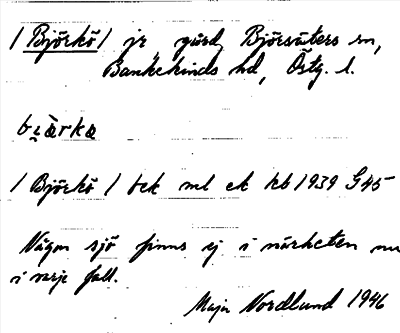 / Björkö / jr, gård, Björsäters sn,
Bankekinds hd, Östg. l.
bi̯ærkæ
/ Björkö / bek ml ek kb 1939 G45
Någon sjö finns ej i närheten nu
i varje fall.
Maja Nordlund 1946